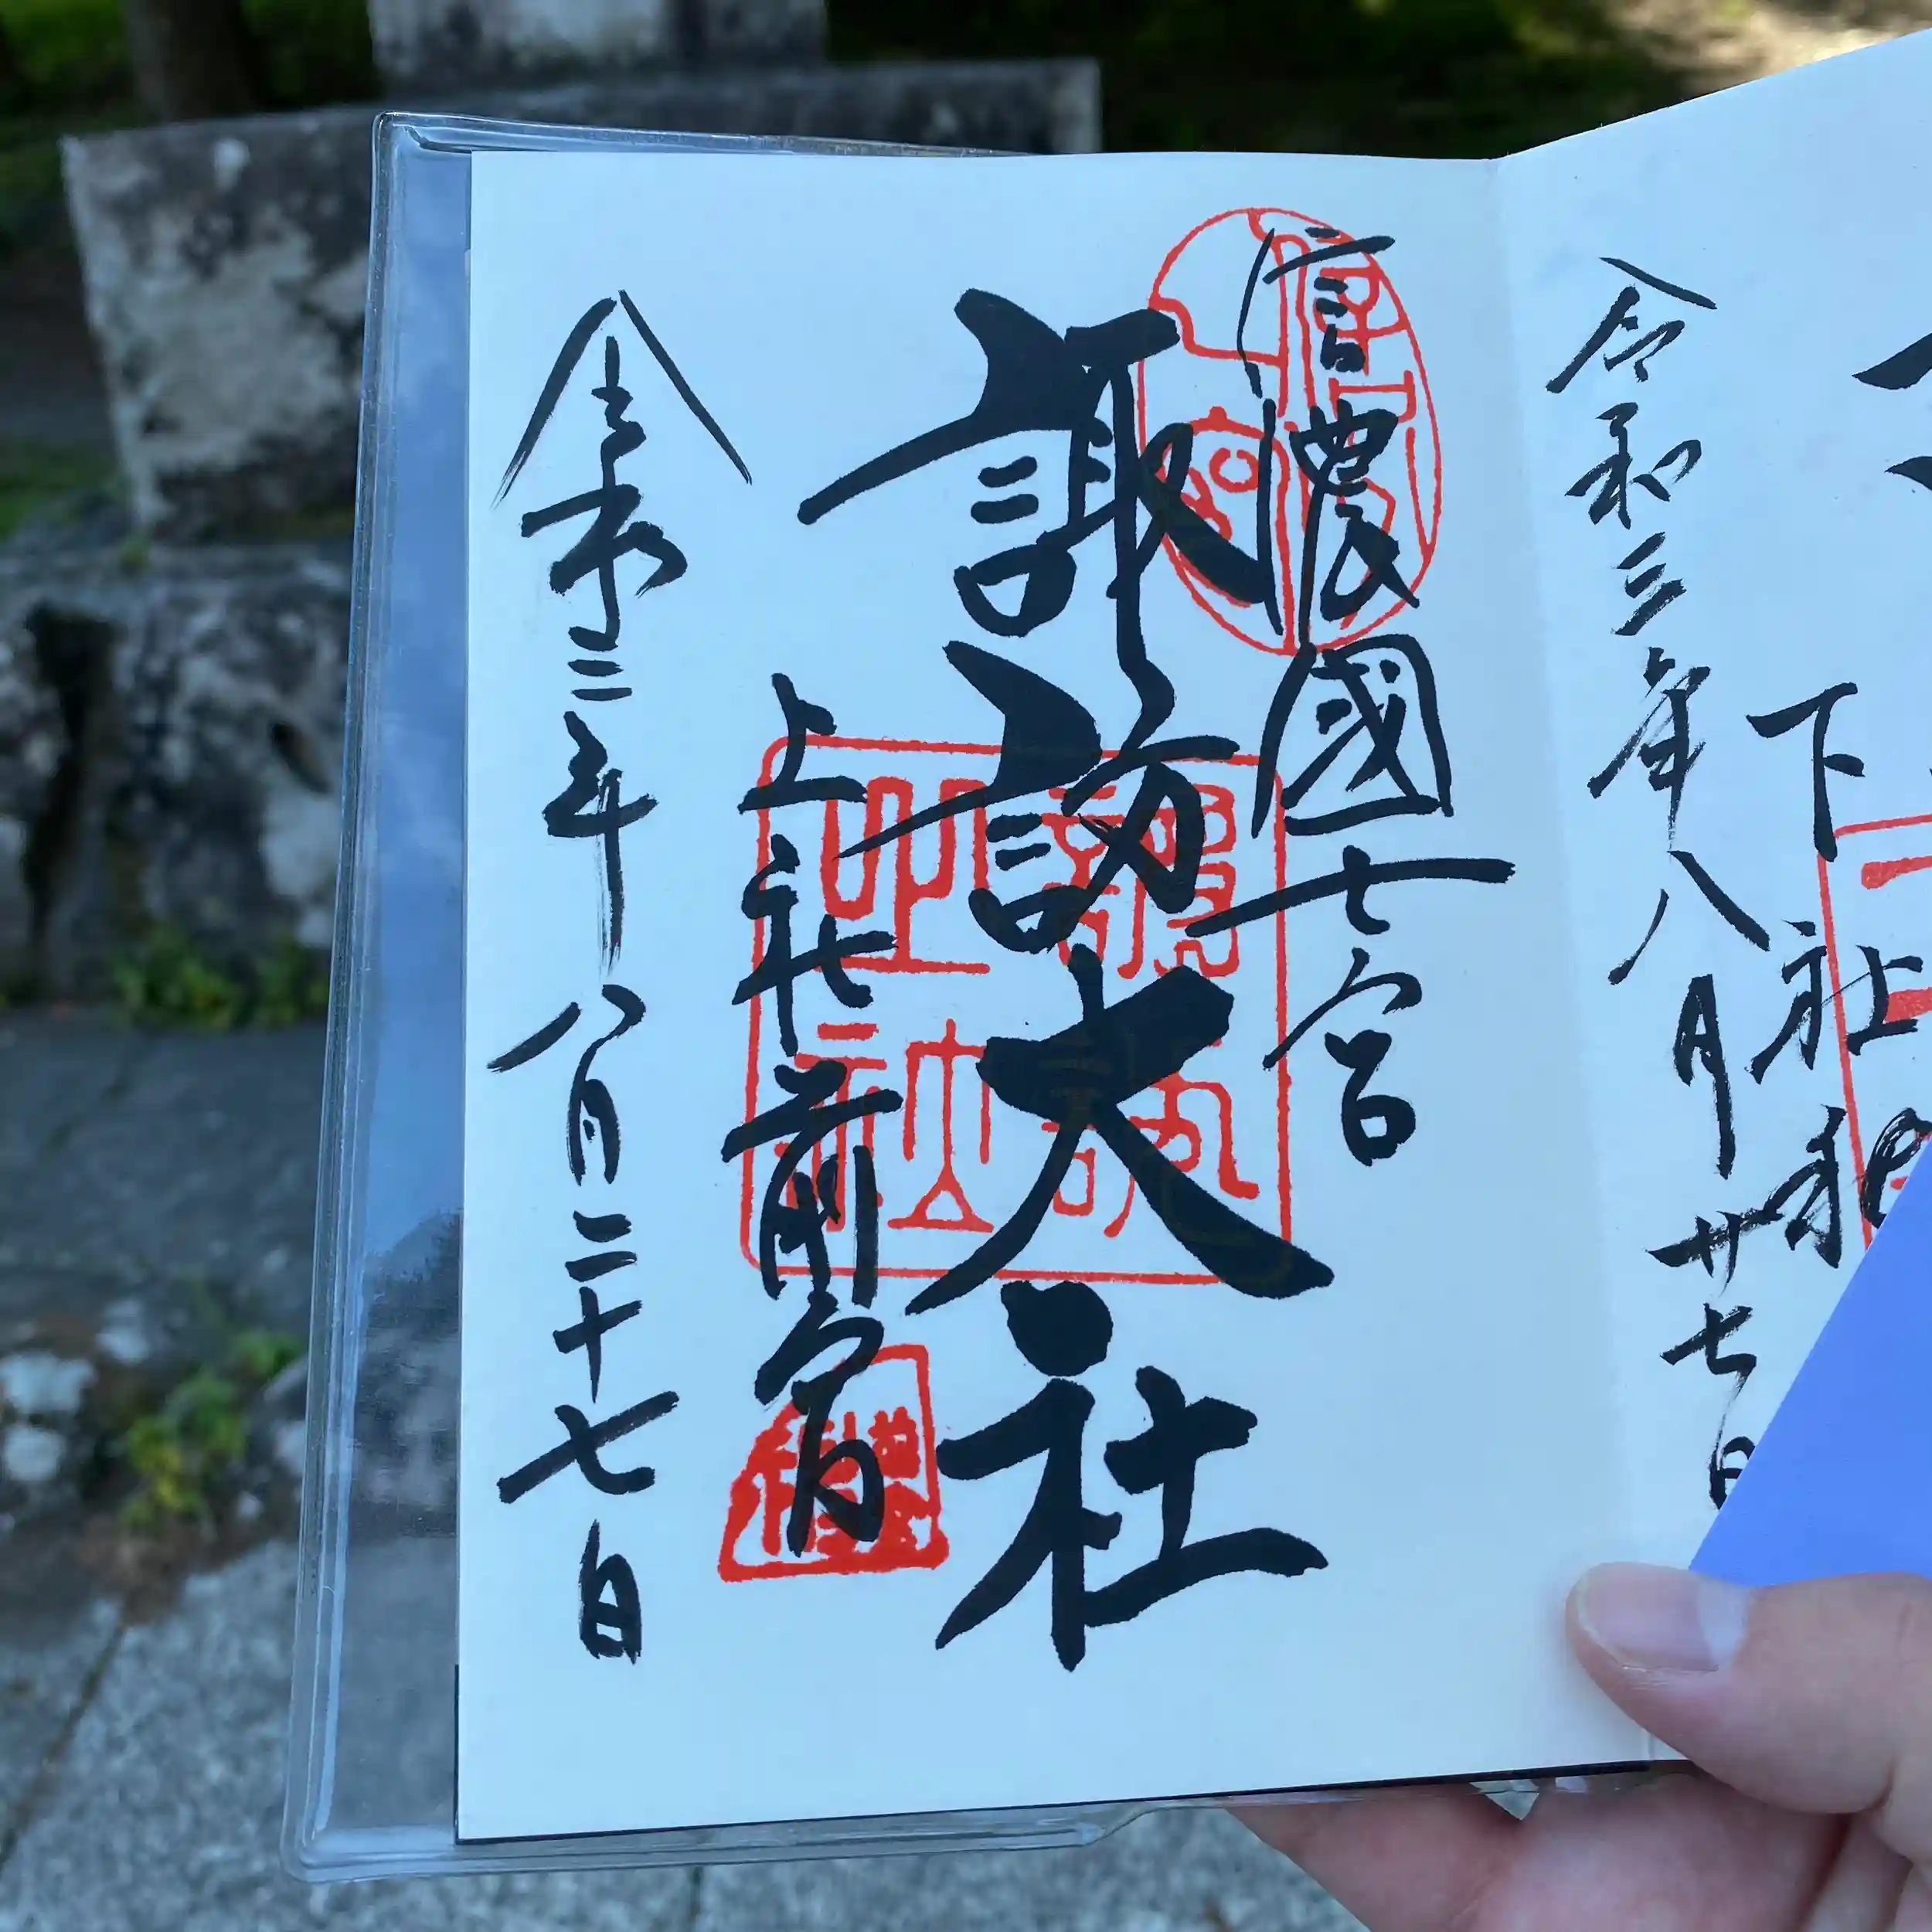 下社秋
令和三年八月廿七日
信濃國一之宮
諏訪大社
上社前宮
令和三年八月二十七日